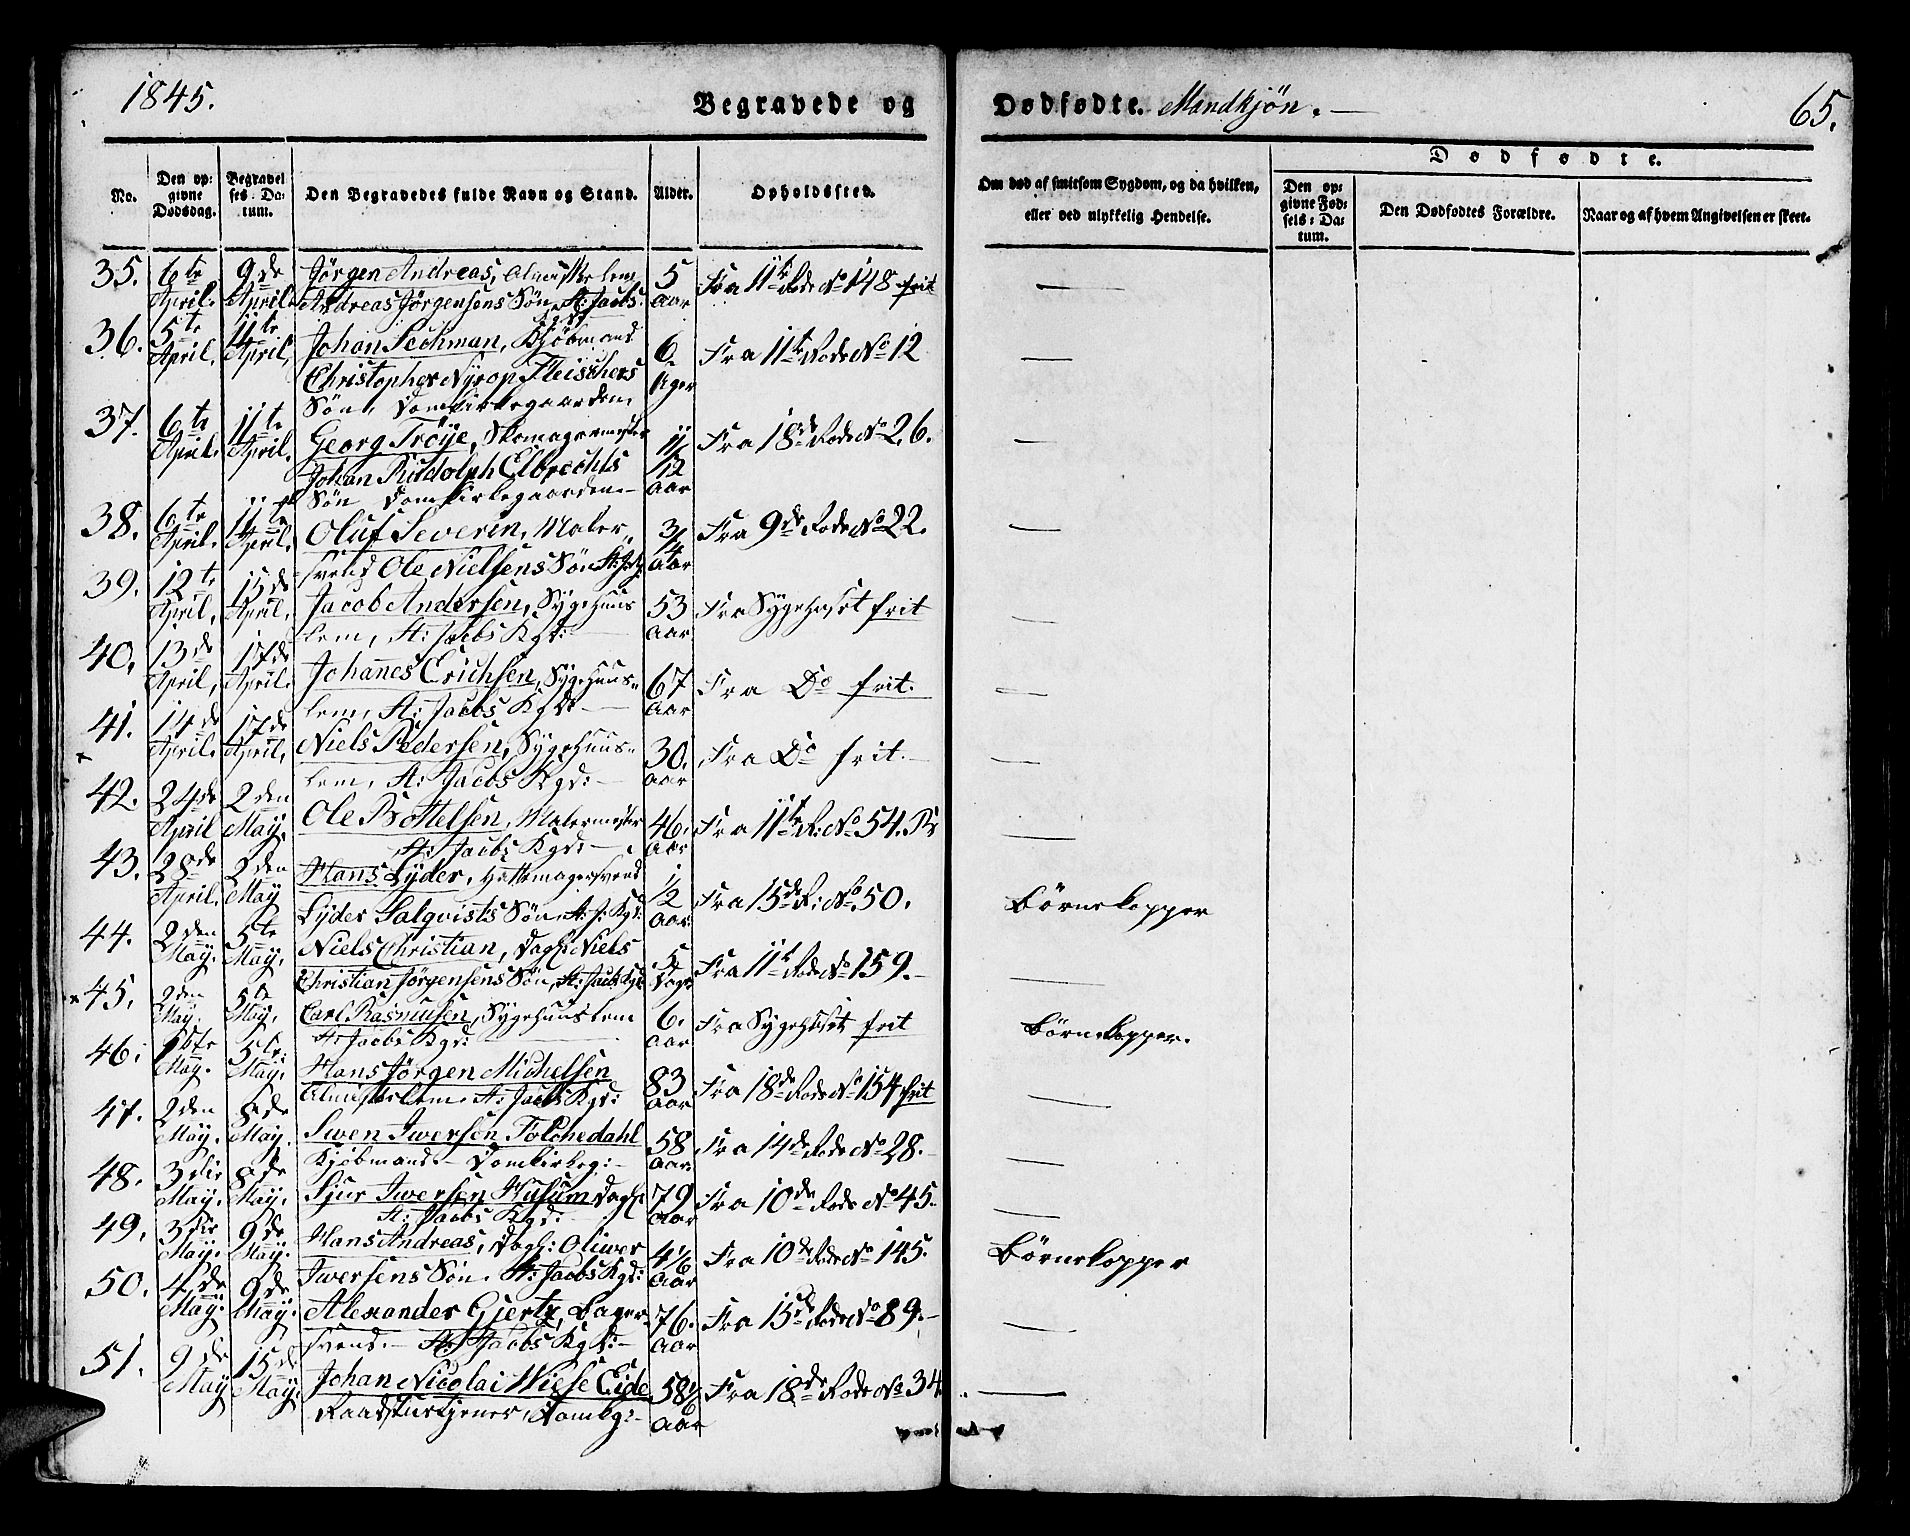 1845.
Begravede og Dødfødte. Mandkjøn. —
65.
No. | Den opgivne Dødsdag. | Begravelses-Datum. | Den Begravedes fulde Navn og Stand. | Alder. | Opholdssted. | Om død af smitsom Sygdom, og da hvilken, eller ved ulykkelig Hendelse. | Dødfødte. | Den opgivne Fødsels-Datum. | Den Dødfødtes Forældre. | Naar og af hvem Angivelsen er skeet.
35. 6te April. 9de April. Jörgen Andreas, Almisselem 5 Aar Fra 11te Rode No 148 frit —
Andreas Jörgensens Søn St: Jacobs Kgd:
36. 5te April. 11te April, Johan Sechman, Kjøbmand 6. Uger Fra 11te Rode No 12 —
Christopher Nyrop Fleischers
Søn, Domkirkegaarden,
37. 6te April. 11te April. Georg Tröye, Skomagermester 11/12 Aar Fra 18de Rode No 26. —
Johan Rudolph Elbrechts
Søn Domkirkegaarden –
38. 6te April. 11te April. Oluf Severin, Maler- 3/4 Aar Fra 9de Rode No 22. —
svend Ole Nielsens Søn St: Jac:
39. 12te April, 15de April, Jacob Andersen, Sygehuus 53 Aar Fra Sygehuset frit —
lem, St: Jacobs Kgd:
40. 13de April, 17de April. Johannes Erichsen, Sygehuus- 67 Aar Fra Do frit. —
lem, St: Jacobs Kgd: —
41. 14de April. 17de April. Niels Pedersen, Sygehuus- 30. Aar Fra Do frit. —
lem, St: Jacobs Kgd: –
42. 24de April 2den May. Ole Bottelsen, Malermester 46. Aar Fra 11te R: No 54. —
St: Jacobs Kgd: –
43. 28de April. 2den May Hans Lyder, Hattemagersvend 1/2 Aar Fra 15de R: No 50. Børnekopper
Lyder Salqvists Søn, St: J: Kgd:
44. 2den May. 5te May. Niels Christian, Dagl: Niels 5 Dage Fra 11te Rode No 159. —
Christian Jörgensens Søn, St: Jacobs Kgd:
45. 2den May. 5te May. Carl Rasmusen, Sygehuuslem 6. Aar Fra Sygehuset frit Børnekopper.
St Jacobs Kgd:
46. 1ste May. 5te May. Hans Jörgen Michelsen 83 Aar Fra 18de Rode No 154 frit —
Almisselem, St: Jacobs Kgd:
47. 2den May. 8de May. Swen Iwersen Tolchedahl 58 Aar Fra 14de Rode No 28. —
Kjøbmand. – Domkirkeg: –
48. 3die May. 8de May. Sjur Iwersen Husum Dagl: 79 Aar Fra 10de Rode No 45. —
St: Jacobs Kgd: –
49. 3die May. 9de May. Hans Andreas, Dagl: Oliwer 4 1/6 Aar Fra 10de Rode No 145. Børnekopper
Iwersens Søn. St: Jacobs Kgd:
50. 4de May. 9de May. Alexander Gjertz, Bager- 76. Aar Fra 15de Rode No 89. —
svend. – St: Jacobs Kgd: –
51. 9de May 15de May. Johan Nicolai Wiese Eide 58 1/6 Aar Fra 18de Rode No 34 —
Raadstuetjener, Domkg: –